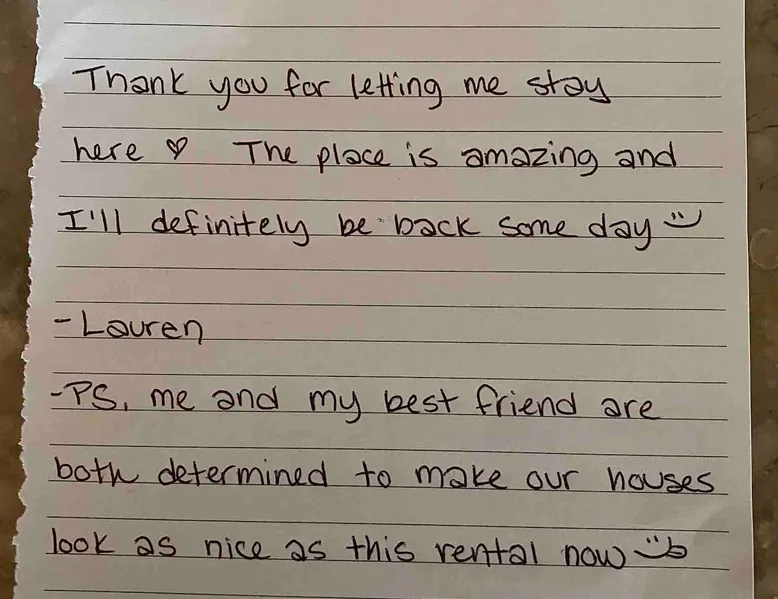 Thank you for letting me stay
here ♡ The place is amazing and
I'll definitely be back some day :)
-Lauren
-PS, me and my best friend are
both determined to make our houses
look as nice as this rental now :b